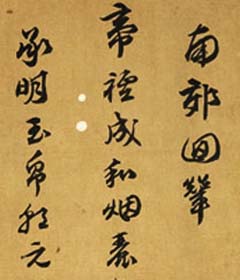 南郊回輦
帝禋成和烟
承明玉帛朝元